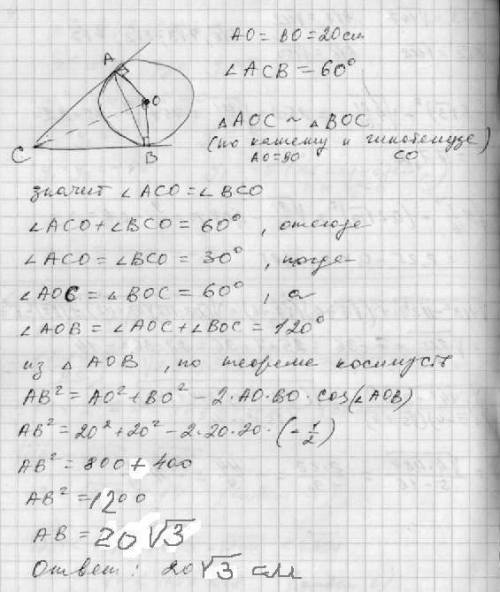 AO = BO = 20 см
∠ACB = 60°
△AOC ~ △BOC
(по катету и гипотенузе)
AO=BO CO
A
O
C
B
значит ∠ACO = ∠BCO
∠ACO + ∠BCO = 60°, отсюда
∠ACO = ∠BCO = 30°, тогда
∠AOC = ∠BOC = 60°, а
∠AOB = ∠AOC + ∠BOC = 120°
из △AOB, по теореме косинусов
AB² = AO² + BO² - 2·AO·BO·cos(∠AOB)
AB² = 20² + 20² - 2·20·20·(-1/2)
AB² = 800 + 400
AB² = 1200
AB = 20√3
Ответ: 20√3 см